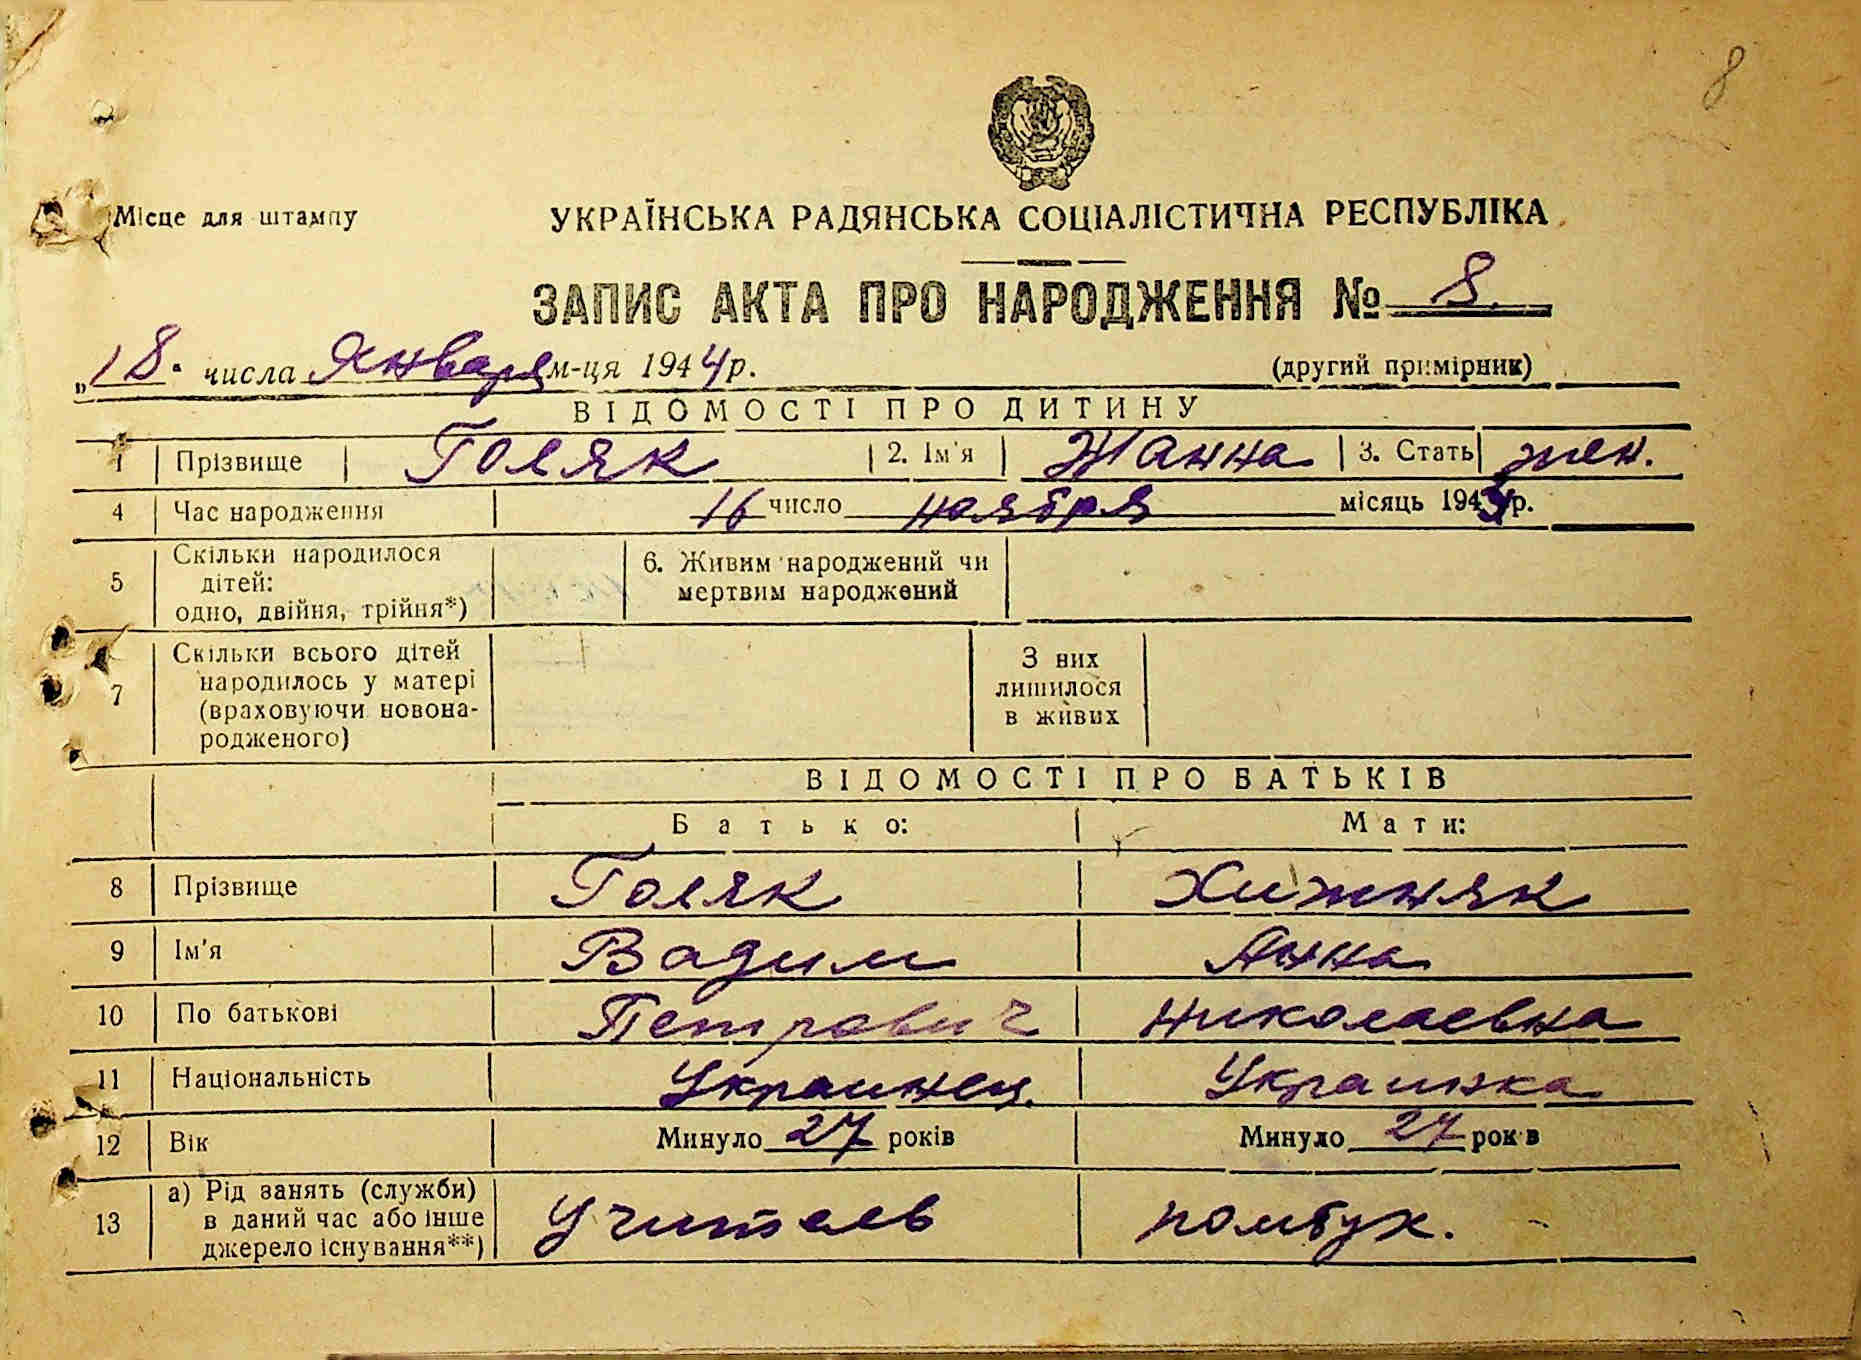 8
Місце для штампу
УКРАЇНСЬКА РАДЯНСЬКА СОЦІАЛІСТИЧНА РЕСПУБЛІКА
ЗАПИС АКТА ПРО НАРОДЖЕННЯ № 8.
„18" числа Января м-ця 1944 р.
(другий примірник)
ВІДОМОСТІ ПРО ДИТИНУ
1 Прізвище Голяк 2. Ім'я Жанна 3. Стать жен.
4 Час народження 16 число ноября місяць 1943 р.
5 Скільки народилося дітей: одно, двійня, трійня*)
6. Живим народжений чи мертвим народжений
7 Скільки всього дітей народилось у матері (враховуючи новонародженого)
З них лишилося в живих
ВІДОМОСТІ ПРО БАТЬКІВ
Батько: Мати:
8 Прізвище Голяк Хижняк
9 Ім'я Вадим Анна
10 По батькові Петрович Николаевна
11 Національність Украинец. Украинка
12 Вік Минуло 27 років Минуло 27 років
13 а) Рід занять (служби) в даний час або інше джерело існування**) Учитель помбух.